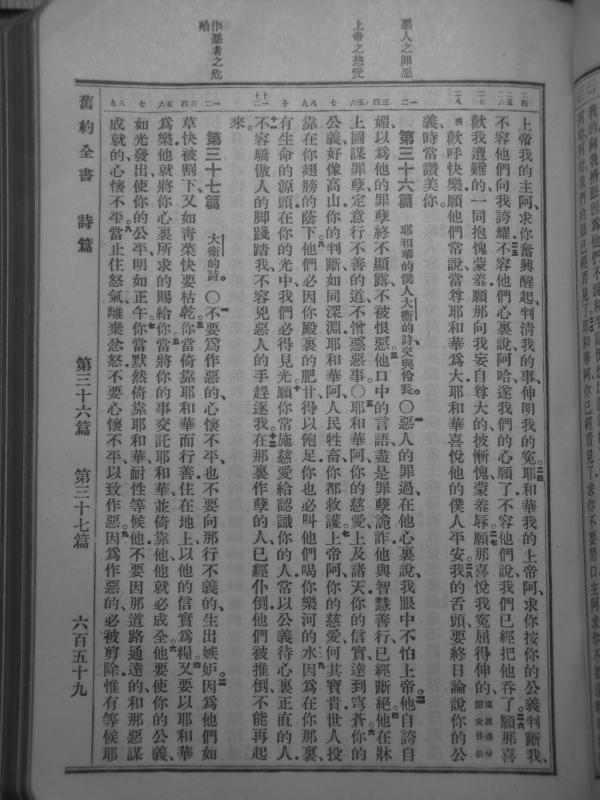 惡人之罪惡
上帝之慈愛
作惡者之危
上帝我的主阿、求你奮興醒起、判清我的事、伸明我的冤。耶和華我的上帝阿、求你按你的公義判斷我、
不容他們向我誇耀。不容他們心裏說、阿哈、遂我們的心願了、不容他們說、我們已經把他吞了。願那喜
歡我遭難的、一同抱愧蒙羞、願那向我妄自尊大的、披慚愧蒙羞辱。願那喜悅我冤屈得伸的、
歡呼快樂、願他們常說、當尊耶和華爲大、耶和華喜悅他的僕人平安。我的舌頭要終日論說你的公
義、時常讚美你。
第三十六篇 耶和華的僕人大衛的詩、交與伶長。〇惡人的罪過、在他心裏說、我眼中不怕上帝。他自誇自
媚、以爲他的罪孽終不顯露、不被恨惡。他口中的言語、盡是罪孽詭詐、他與智慧善行、已經斷絕。他在牀
上圖謀罪孽、定意行不善的道、不憎惡惡事。〇耶和華阿、你的慈愛、上及諸天、你的信實、達到穹蒼。你的
公義、好像高山、你的判斷、如同深淵、耶和華阿、人民牲畜、你都救護。上帝阿、你的慈愛、何其寶貴、世人投
靠在你翅膀的蔭下。他們必因你殿裏的肥甘、得以飽足、你也必叫他們喝你樂河的水。因爲在你那裏、
有生命的源頭、在你的光中、我們必得見光。願你常施慈愛給認識你的人、常以公義待心裏正直的人。
不容驕傲人的脚踐踏我、不容兇惡人的手趕逐我。在那裏作孽的人、已經仆倒、他們被推倒、不能再起
來。
第三十七篇 大衛的詩。〇不要爲作惡的心懷不平、也不要向那行不義的生出嫉妒。因爲他們如
草快被割下、又如青菜快要枯乾。你當倚靠耶和華而行善、住在地上、以他的信實爲糧。又要以耶和華
爲樂、他就將你心裏所求的賜給你。當將你的事交託耶和華、並倚靠他、他就必成全。他要使你的公義、
如光發出、使你的公平、明如正午。你當默然倚靠耶和華、耐性等候他、不要因那道路通達的、和那惡謀
成就的、心懷不平。當止住怒氣、離棄忿怒、不要心懷不平、以致作惡。因爲作惡的、必被剪除、惟有等候耶
舊約全書 詩篇 第三十六篇 第三十七篇 六百五十九